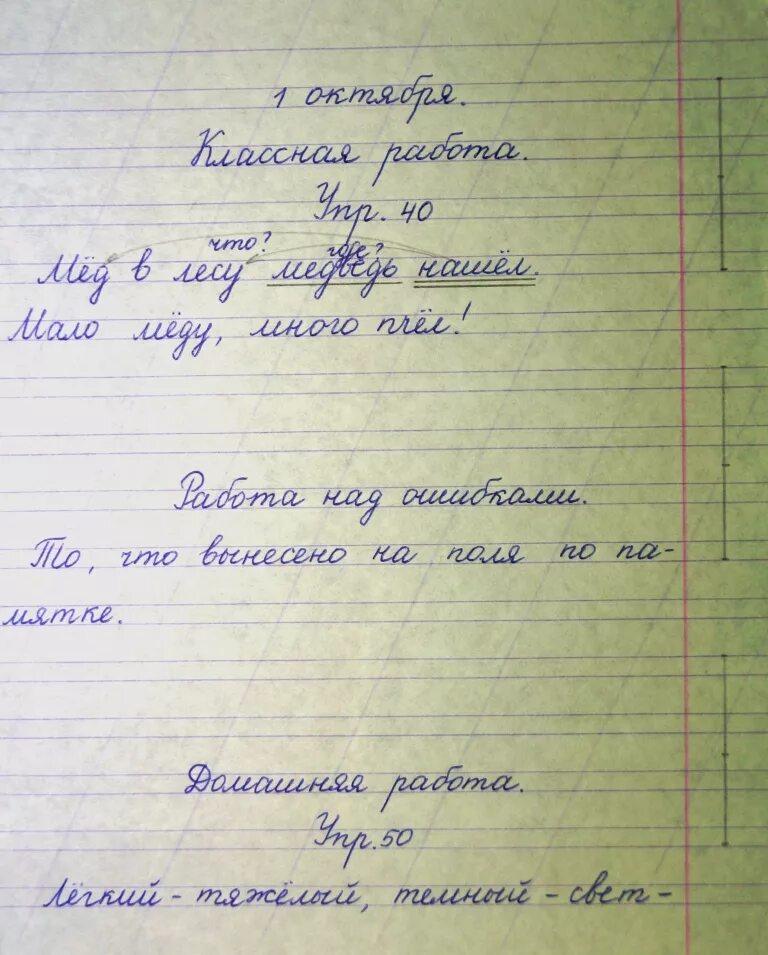 1 октября.
Классная работа.
Упр. 40
что? где?
Мёд в лесу медведь нашёл.
Мало мёду, много пчёл!
Работа над ошибками.
То, что вынесено на поля по па-
мятке.
Домашняя работа.
Упр. 50
Лёгкий - тяжёлый, темный - свет-